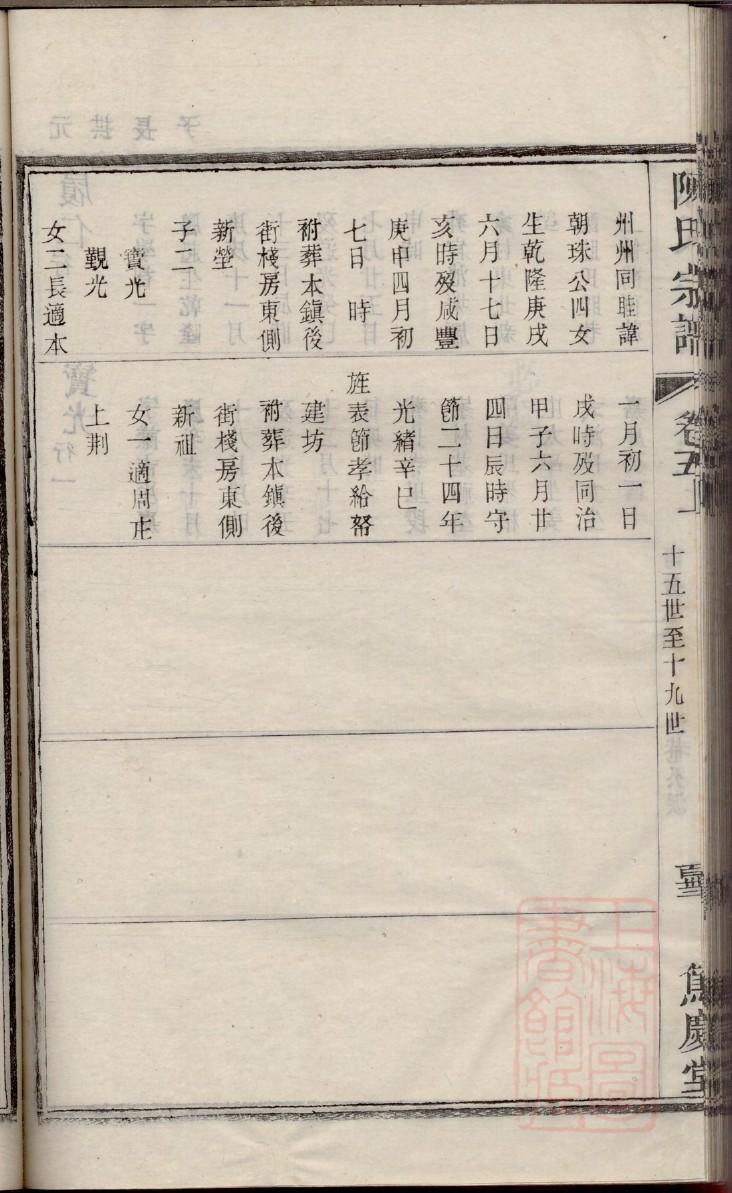 陳氏宗譜
卷五上
十五世至十九世
篤慶堂
州州同眭諱
朝珠公四女
生乾隆庚戌
六月十七日
亥時歿咸豐
庚申四月初
七日 時
祔葬本鎮後
街棧房東側
新塋
子二
寶光
觀光
女二長適本
一月初一日
戌時歿同治
甲子六月廿
四日辰時守
節二十四年
光緒辛巳
旌表節孝給帑
建坊
祔葬本鎮後
街棧房東側
新祖
女一適周庄
上荆
上海圖書館藏